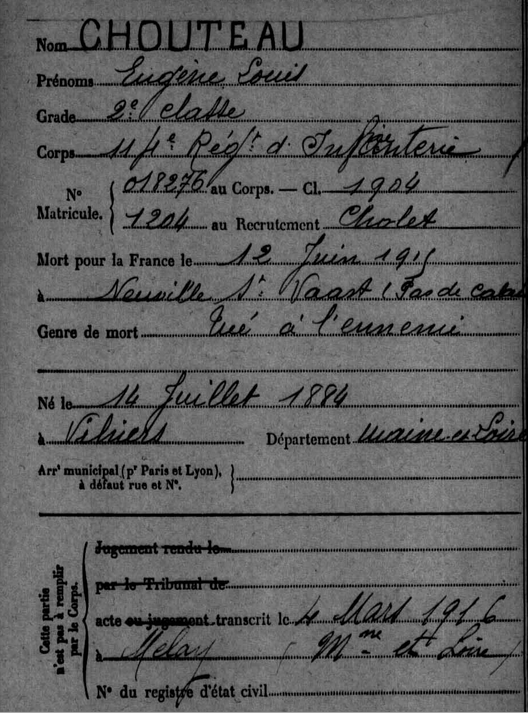 Nom CHOUTEAU
Prénoms Eugène Louis
Grade 2e classe
Corps 114e Régt d'Infanterie
No Matricule. 018276 au Corps. — Cl. 1904
1204 au Recrutement Cholet
Mort pour la France le 12 Juin 1915
à Neuville St Vaast (Pas de Calai
Genre de mort Tué à l'ennemi
Né le 14 Juillet 1884
à Vihiers Département Maine-et-Loire
Arrt municipal (pr Paris et Lyon),
à défaut rue et No.
Cette partie
n'est pas à remplir
par le Corps.
Jugement rendu le
par le Tribunal de
acte ou jugement transcrit le 4 Mars 1916
à Melay (Mne et Loire)
No du registre d'état civil